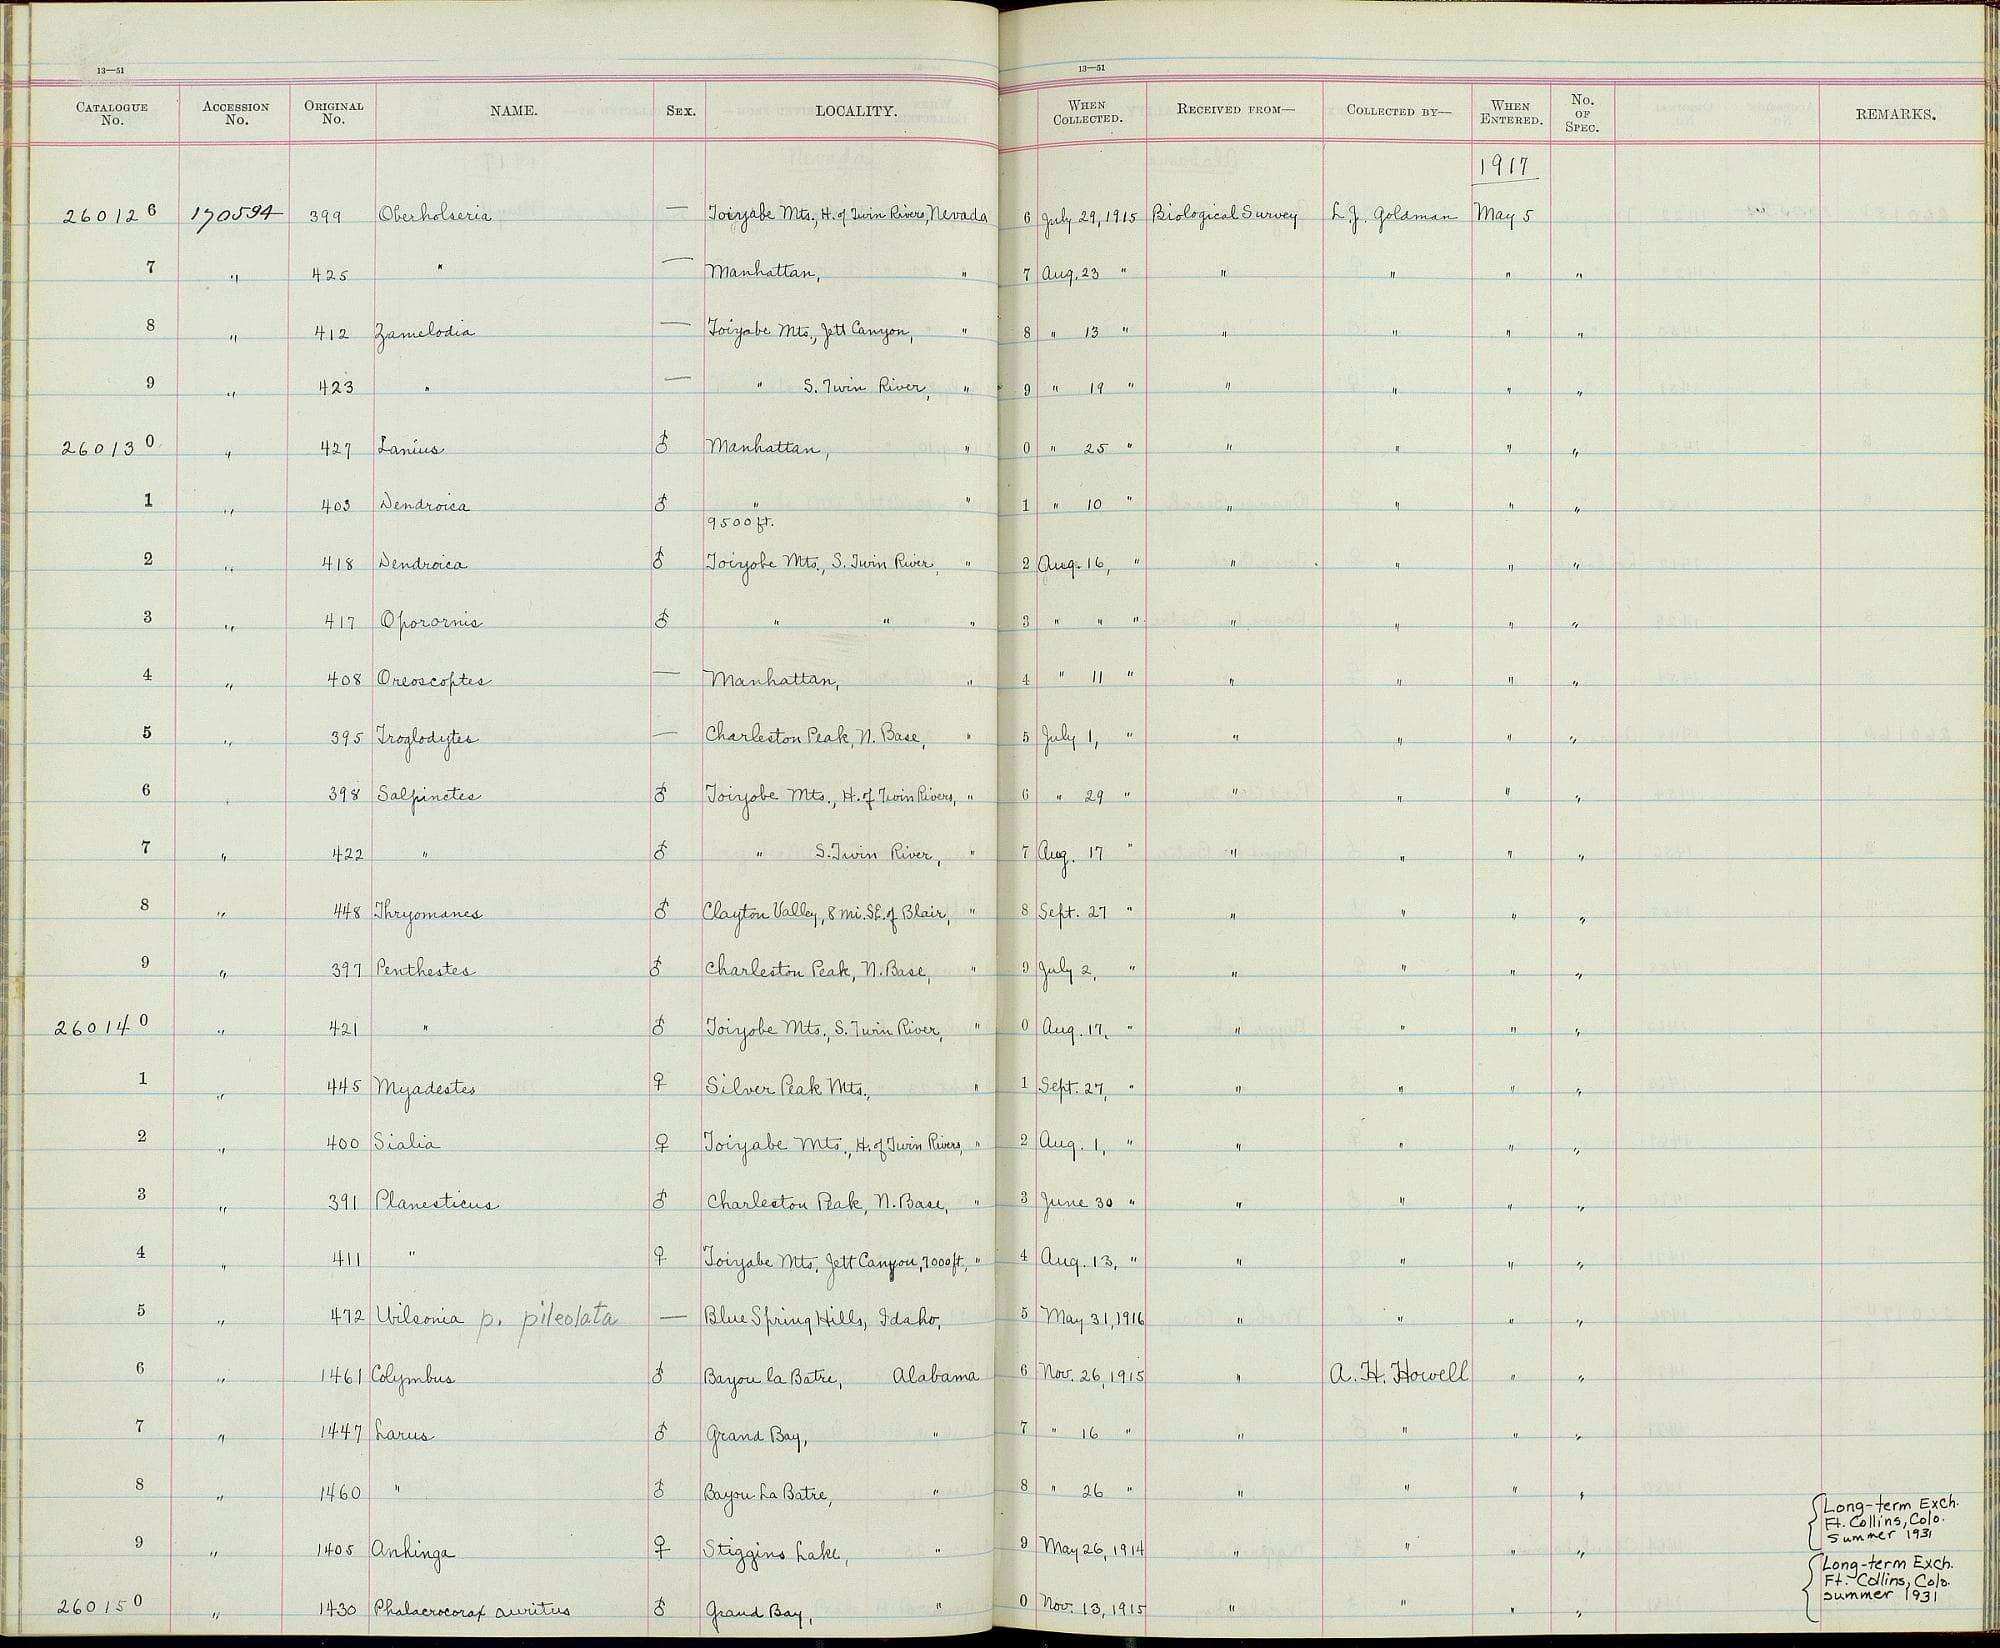 13—51 13—51
CATALOGUE No. ACCESSION No. ORIGINAL No. NAME. SEX. LOCALITY. WHEN COLLECTED. RECEIVED FROM— COLLECTED BY— WHEN ENTERED. No. OF SPEC. REMARKS.
1917
260126 170594 399 Oberholseria — Toiyabe Mts., H. of Twin Rivers, Nevada 6 July 29, 1915 Biological Survey L. J. Goldman May 5
7 " 425 " — Manhattan, " 7 Aug. 23 " " " " "
8 " 412 Zamelodia — Toiyabe Mts., Jett Canyon, " 8 " 13 " " " " "
9 " 423 " — " S. Twin River, " 9 " 19 " " " " "
260130 " 427 Lanius ♂ Manhattan, " 0 " 25 " " " " "
1 " 403 Dendroica ♂ " " 1 " 10 " " " " "
9500 ft.
2 " 418 Dendroica ♂ Toiyobe Mts., S. Twin River, " 2 Aug. 16, " " " " "
3 " 417 Oporornis ♂ " " " 3 " " " " " " "
4 " 408 Oreoscoptes — Manhattan, " 4 " 11 " " " " "
5 " 395 Troglodytes — Charleston Peak, N. Base, " 5 July 1, " " " " "
6 " 398 Salpinctes ♂ Toiyobe Mts., H. of Twin Rivers, " 6 " 29 " " " " "
7 " 422 " ♂ " S. Twin River, " 7 Aug. 17 " " " " "
8 " 448 Thryomanes ♂ Clayton Valley, 8 mi. SE. of Blair, " 8 Sept. 27 " " " " "
9 " 397 Penthestes ♂ Charleston Peak, N. Base, " 9 July 2, " " " " "
260140 " 421 " ♂ Toiyobe Mts., S. Twin River, " 0 Aug. 17, " " " " "
1 " 445 Myadestes ♀ Silver Peak Mts., " 1 Sept. 27, " " " " "
2 " 400 Sialia ♀ Toiyabe Mts., H. of Twin Rivers, " 2 Aug. 1, " " " " "
3 " 391 Planesticus ♂ Charleston Peak, N. Base, " 3 June 30 " " " " "
4 " 411 " ♀ Toiyabe Mts., Jett Canyon, 7000 ft., " 4 Aug. 13, " " " " "
5 " 472 Wilsonia p. pileolata — Blue Spring Hills, Idaho, 5 May 31, 1916 " " " "
6 " 1461 Colymbus ♂ Bayou la Batre, Alabama 6 Nov. 26, 1915 " A. H. Howell " "
7 " 1447 Larus ♂ Grand Bay, " 7 " 16 " " " " "
8 " 1460 " ♂ Bayou La Batre, " 8 " 26 " " " " "
9 " 1405 Anhinga ♀ Stiggins Lake, " 9 May 26, 1914 " " " " Long-term Exch. Ft. Collins, Colo. Summer 1931
260150 " 1430 Phalacrocorax auritus ♂ Grand Bay, " 0 Nov. 13, 1915 " " " " Long-term Exch. Ft. Collins, Colo. summer 1931